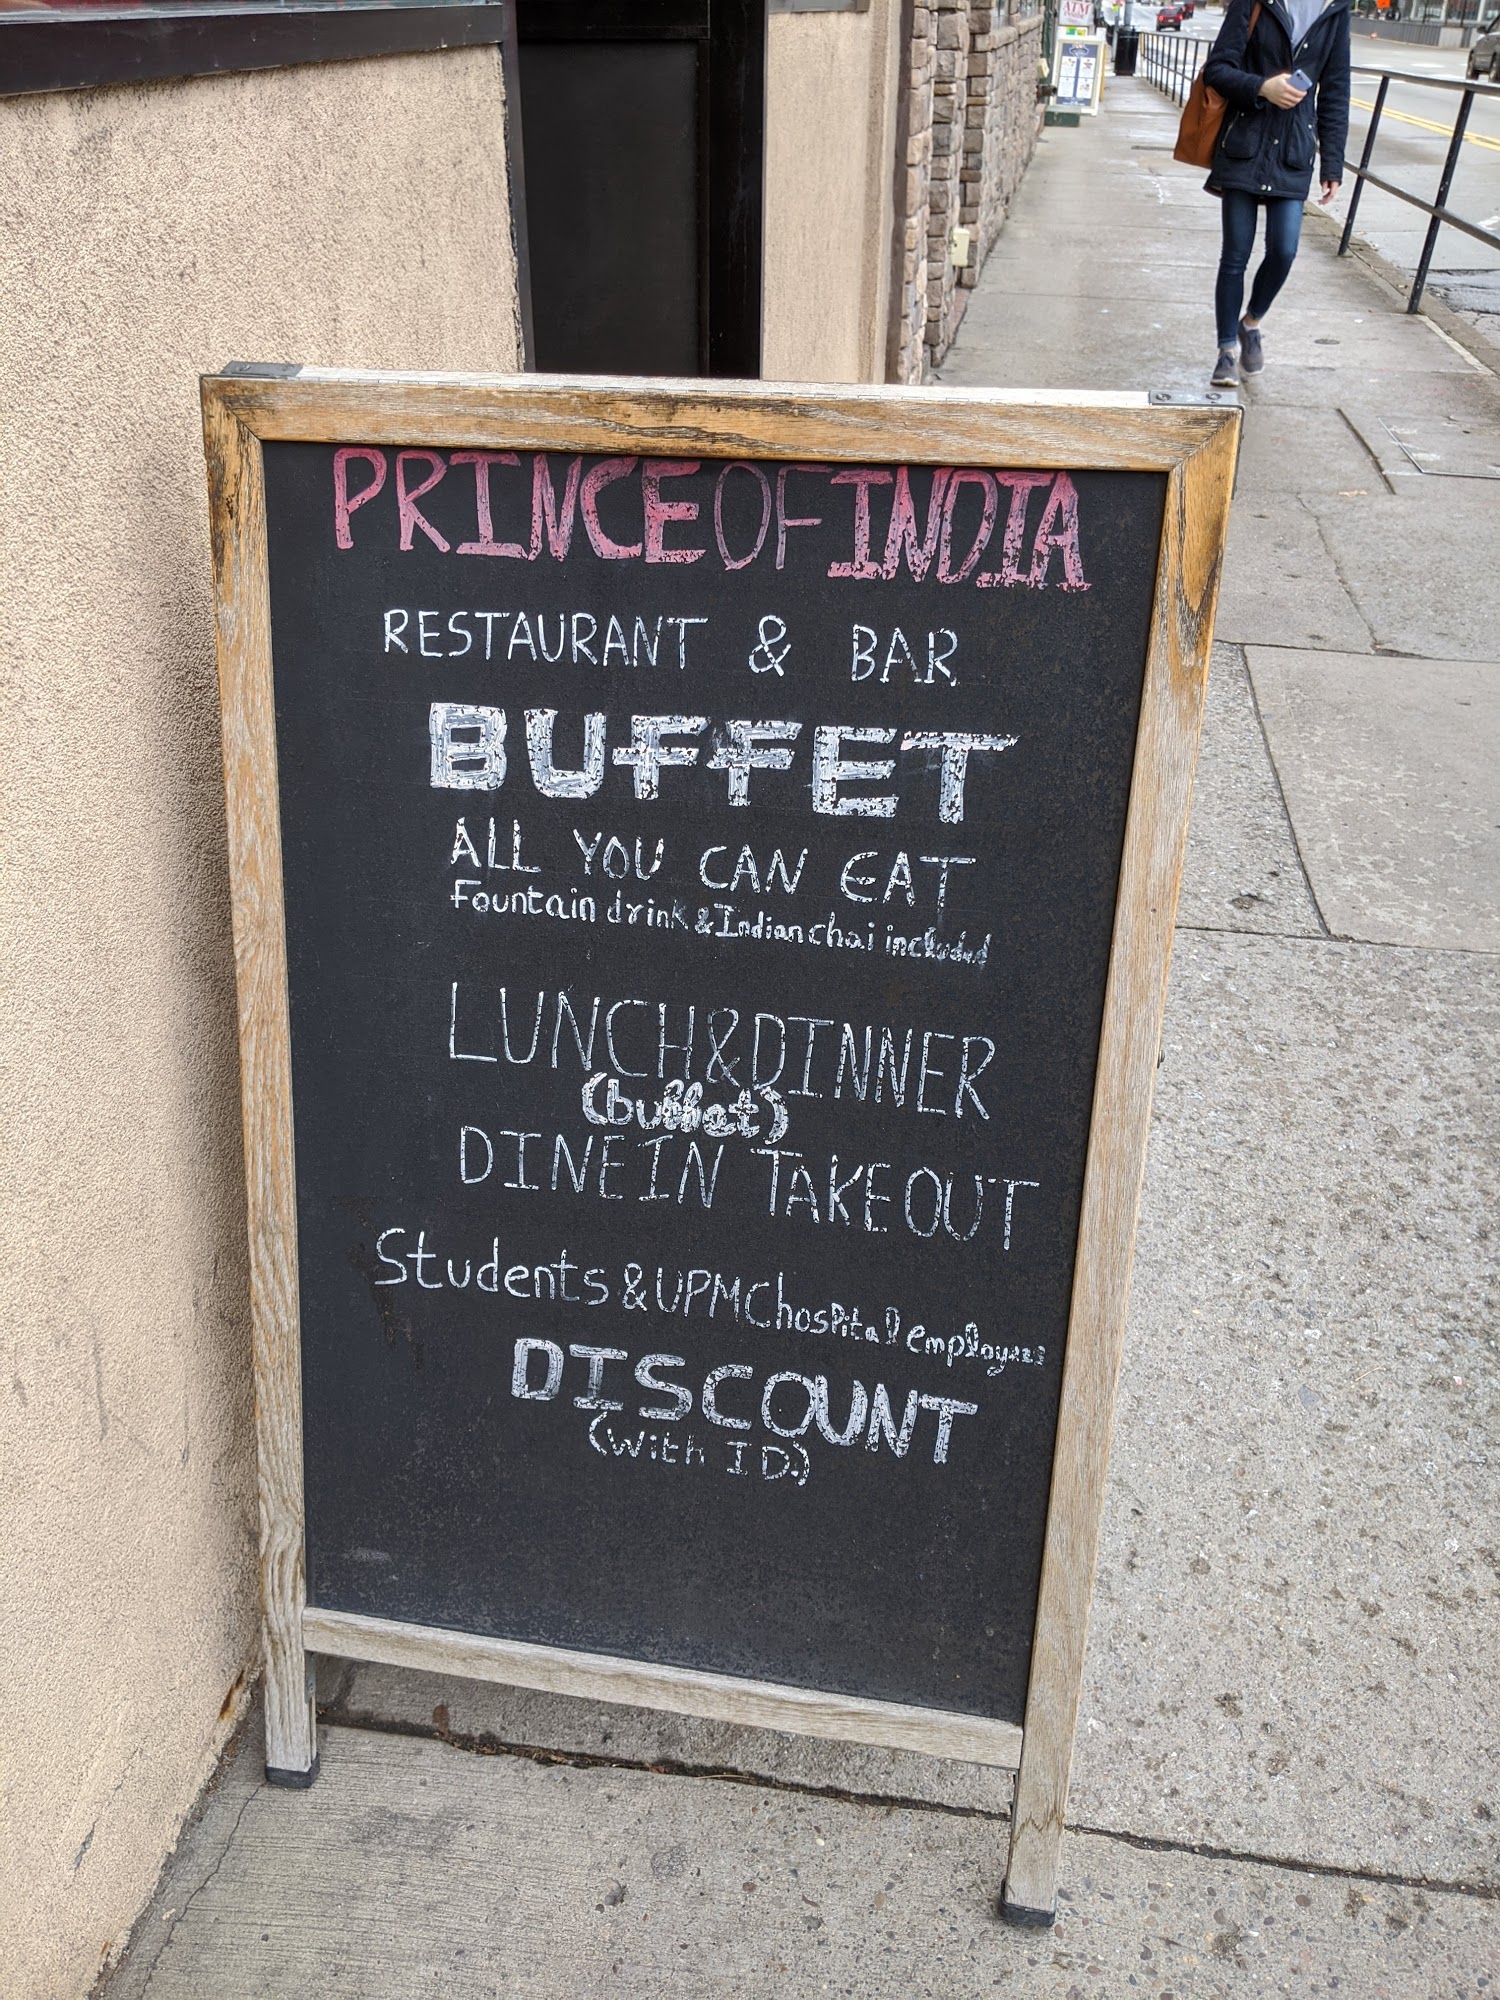 PRINCE OF INDIA
RESTAURANT & BAR
BUFFET
ALL YOU CAN EAT
Fountain drink & Indian chai included
LUNCH & DINNER
(buffet)
DINE IN TAKE OUT
Students & UPMC hospital employees
DISCOUNT
(With ID.)
ATM